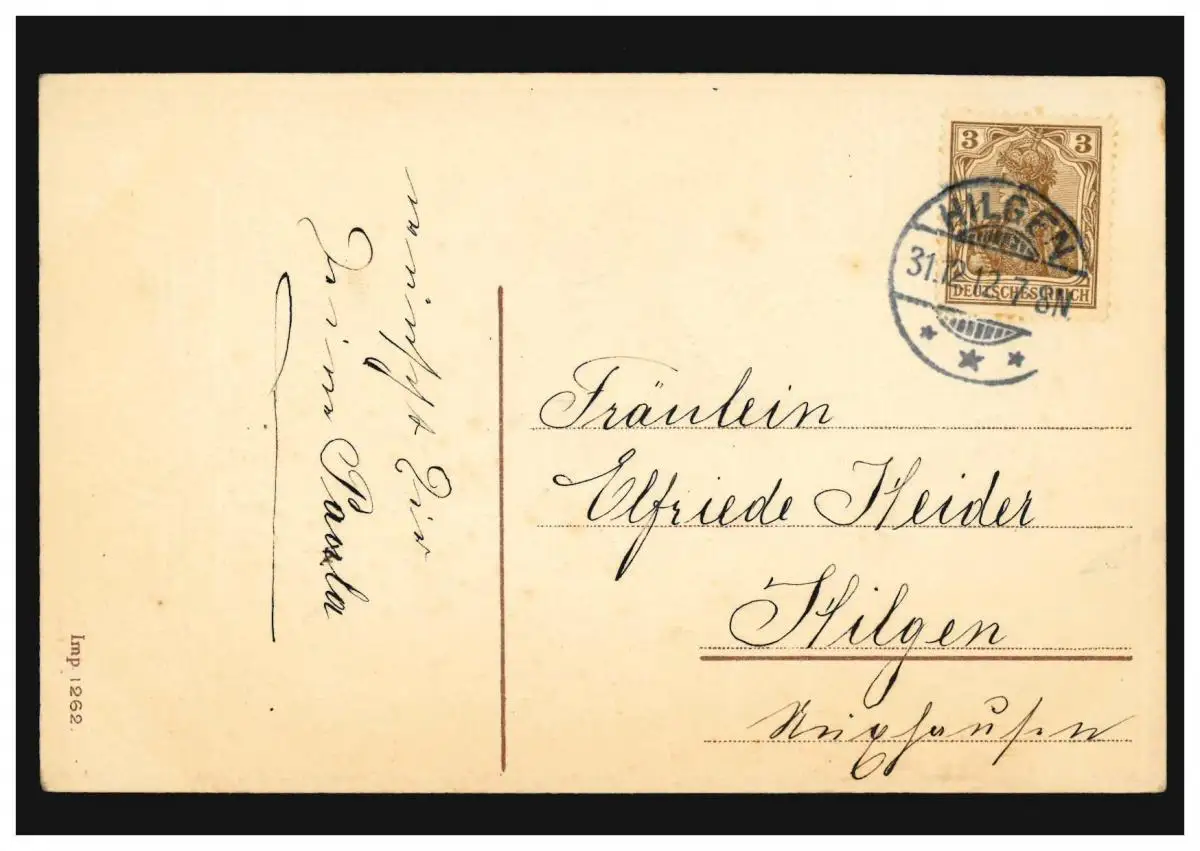 3 3
DEUTSCHES REICH
HILGEN
31.12.12.7-8N.
Dir
Deine Paula
Fräulein
Elfriede Heider
Hilgen
Imp. 1262.